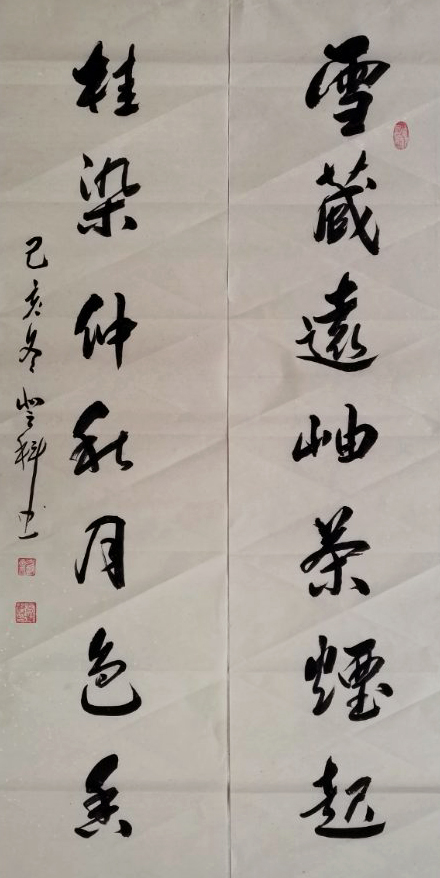 雪藏遠岫茶煙起
桂染仲秋月色香
己亥冬 登科书